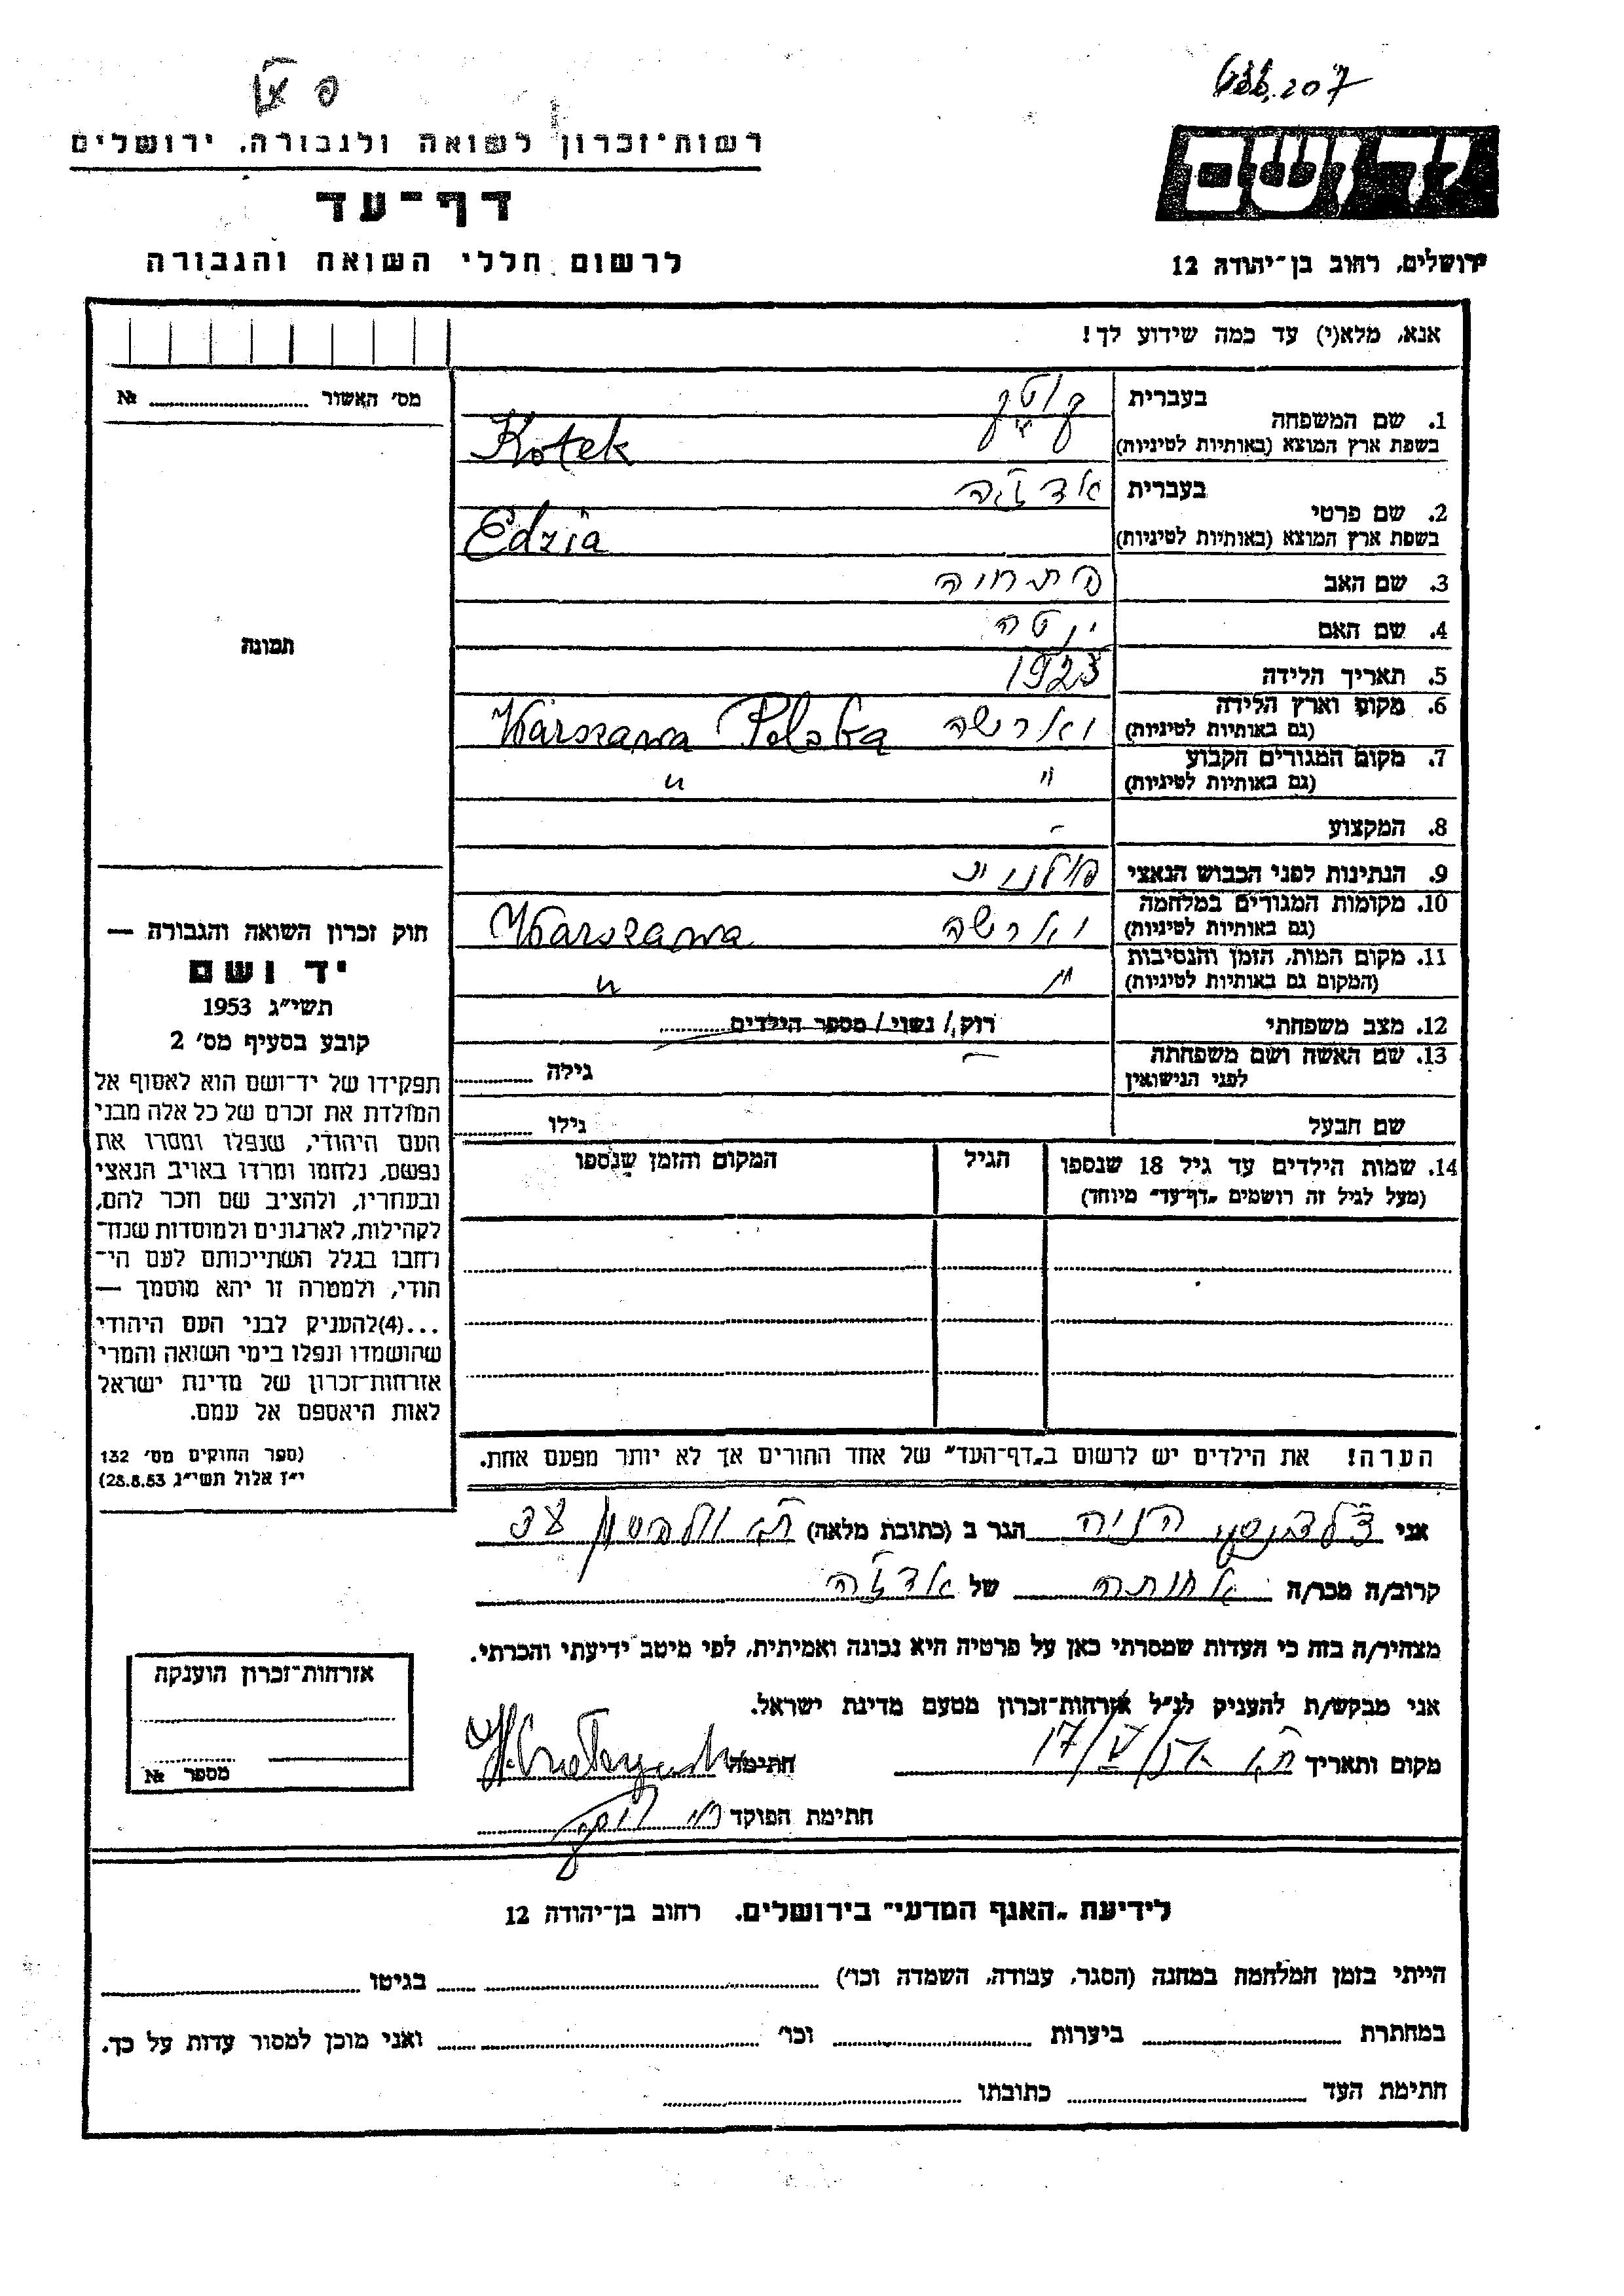 פ
רשות־זכרון לשואה ולגבורה, ירושלים
דף־עד
לרשום חללי השואה והגבורה
יד ושם
ירושלים, רחוב בן־יהודה 12
אנא, מלא(י) עד כמה שידוע לך!
מס׳ האשור № 
1. שם המשפחה
בעברית קוטק
בשפת ארץ המוצא (באותיות לטיניות) Kotek
2. שם פרטי
בעברית אדז'ה
בשפת ארץ המוצא (באותיות לטיניות) Edzia
3. שם האב פתחיה
4. שם האם יטה
5. תאריך הלידה 1923
6. מקום וארץ הלידה ווארשה Warszawa Polska
(גם באותיות לטיניות)
7. מקום המגורים הקבוע " "
(גם באותיות לטיניות)
8. המקצוע -
9. הנתינות לפני הכבוש הנאצי פולנית
10. מקומות המגורים במלחמה וארשה Warszawa
(גם באותיות לטיניות)
11. מקום המות, הזמן והנסיבות " "
(המקום גם באותיות לטיניות)
12. מצב משפחתי רוק/ נשוי / מספר הילדים
13. שם האשה ושם משפחתה - גילה
לפני הנישואין
שם הבעל גילו
14. שמות הילדים עד גיל 18 שנספו הגיל המקום והזמן שנספו
(מעל לגיל זה רושמים „דף־עד" מיוחד)
הערה! את הילדים יש לרשום ב„דף־העד" של אחד ההורים אך לא יותר מפעם אחת.
תמונה
חוק זכרון השואה והגבורה —
יד ושם
תשי״ג 1953
קובע בסעיף מס׳ 2
תפקידו של יד־ושם הוא לאסוף אל
המולדת את זכרם של כל אלה מבני
העם היהודי, שנפלו ומסרו את
נפשם, נלחמו ומרדו באויב הנאצי
ובעוזריו, ולהציב שם וזכר להם,
לקהילות, לארגונים ולמוסדות שנח־
רבו בגלל השתייכותם לעם הי־
הודי, ולמטרה זו יהא מוסמך —
...(4)להעניק לבני העם היהודי
שהושמדו ונפלו בימי השואה והמרי
אזרחות־זכרון של מדינת ישראל
לאות היאספם אל עמם.
(ספר החוקים מס׳ 132
י״ז אלול תשי״ג 28.8.53)
אני הניה הגר ב (כתובת מלאה)
קרוב/ה מכר/ה אחותה של אדז'ה
מצהיר/ה בזה כי העדות שמסרתי כאן על פרטיה היא נכונה ואמיתית, לפי מיטב ידיעתי והכרתי.
אני מבקש/ת להעניק לנ״ל אזרחות־זכרון מטעם מדינת ישראל.
מקום ותאריך ת"א 17/V/ חתימה
חתימת הפוקד
אזרחות־זכרון הוענקה
מספר №
לידיעת „האגף המדעי" בירושלים, רחוב בן־יהודה 12
הייתי בזמן המלחמה במחנה (הסגר, עבודה, השמדה וכו׳) בגיטו
במחתרת ביערות וכו׳ ואני מוכן למסור עדות על כך.
חתימת העד כתובתו